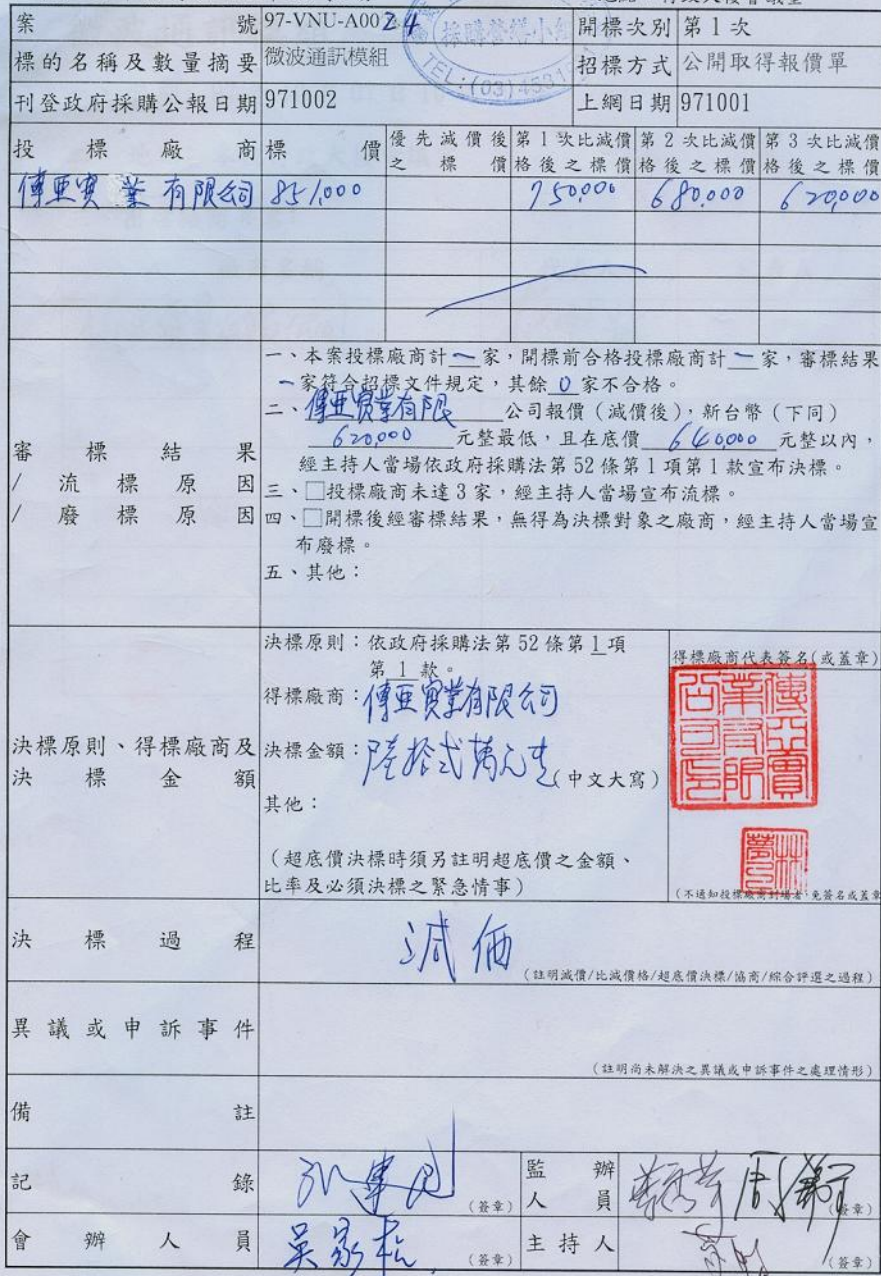 案號 97-VNU-A0024 開標次別 第1次
採購營繕小組
TEL:(03)4531
標的名稱及數量摘要 微波通訊模組 招標方式 公開取得報價單
刊登政府採購公報日期 971002 上網日期 971001
投標廠商 標價 優先減價後之標價 第1次比減價格後之標價 第2次比減價格後之標價 第3次比減價格後之標價
傳亞實業有限公司 851,000 750,000 680,000 620,000
審標結果/流標原因/廢標原因
一、本案投標廠商計一家,開標前合格投標廠商計一家,審標結果
一家符合招標文件規定,其餘0家不合格。
二、傳亞實業有限公司報價(減價後),新台幣(下同)
620,000元整最低,且在底價640,000元整以內,
經主持人當場依政府採購法第52條第1項第1款宣布決標。
三、□投標廠商未達3家,經主持人當場宣布流標。
四、□開標後經審標結果,無得為決標對象之廠商,經主持人當場宣
布廢標。
五、其他:
決標原則、得標廠商及決標金額
決標原則:依政府採購法第52條第1項
第1款。
得標廠商:傳亞實業有限公司
決標金額:陸拾弍萬元整(中文大寫)
其他:
(超底價決標時須另註明超底價之金額、
比率及必須決標之緊急情事)
得標廠商代表簽名(或蓋章)
傳亞實業有限公司印
(不通知投標廠商到場者,免簽名或蓋章
決標過程 減価
(註明減價/比減價格/超底價決標/協商/綜合評選之過程)
異議或申訴事件
(註明尚未解決之異議或申訴事件之處理情形)
備註
記錄 (簽章) 監辦人員 (簽章)
會辦人員 吳家松 (簽章) 主持人 (簽章)